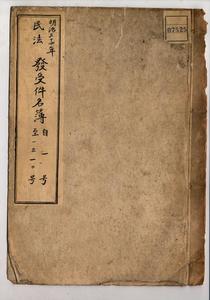 明治三十年
民法
發受件名簿
自一号
至一三一〇号
07525